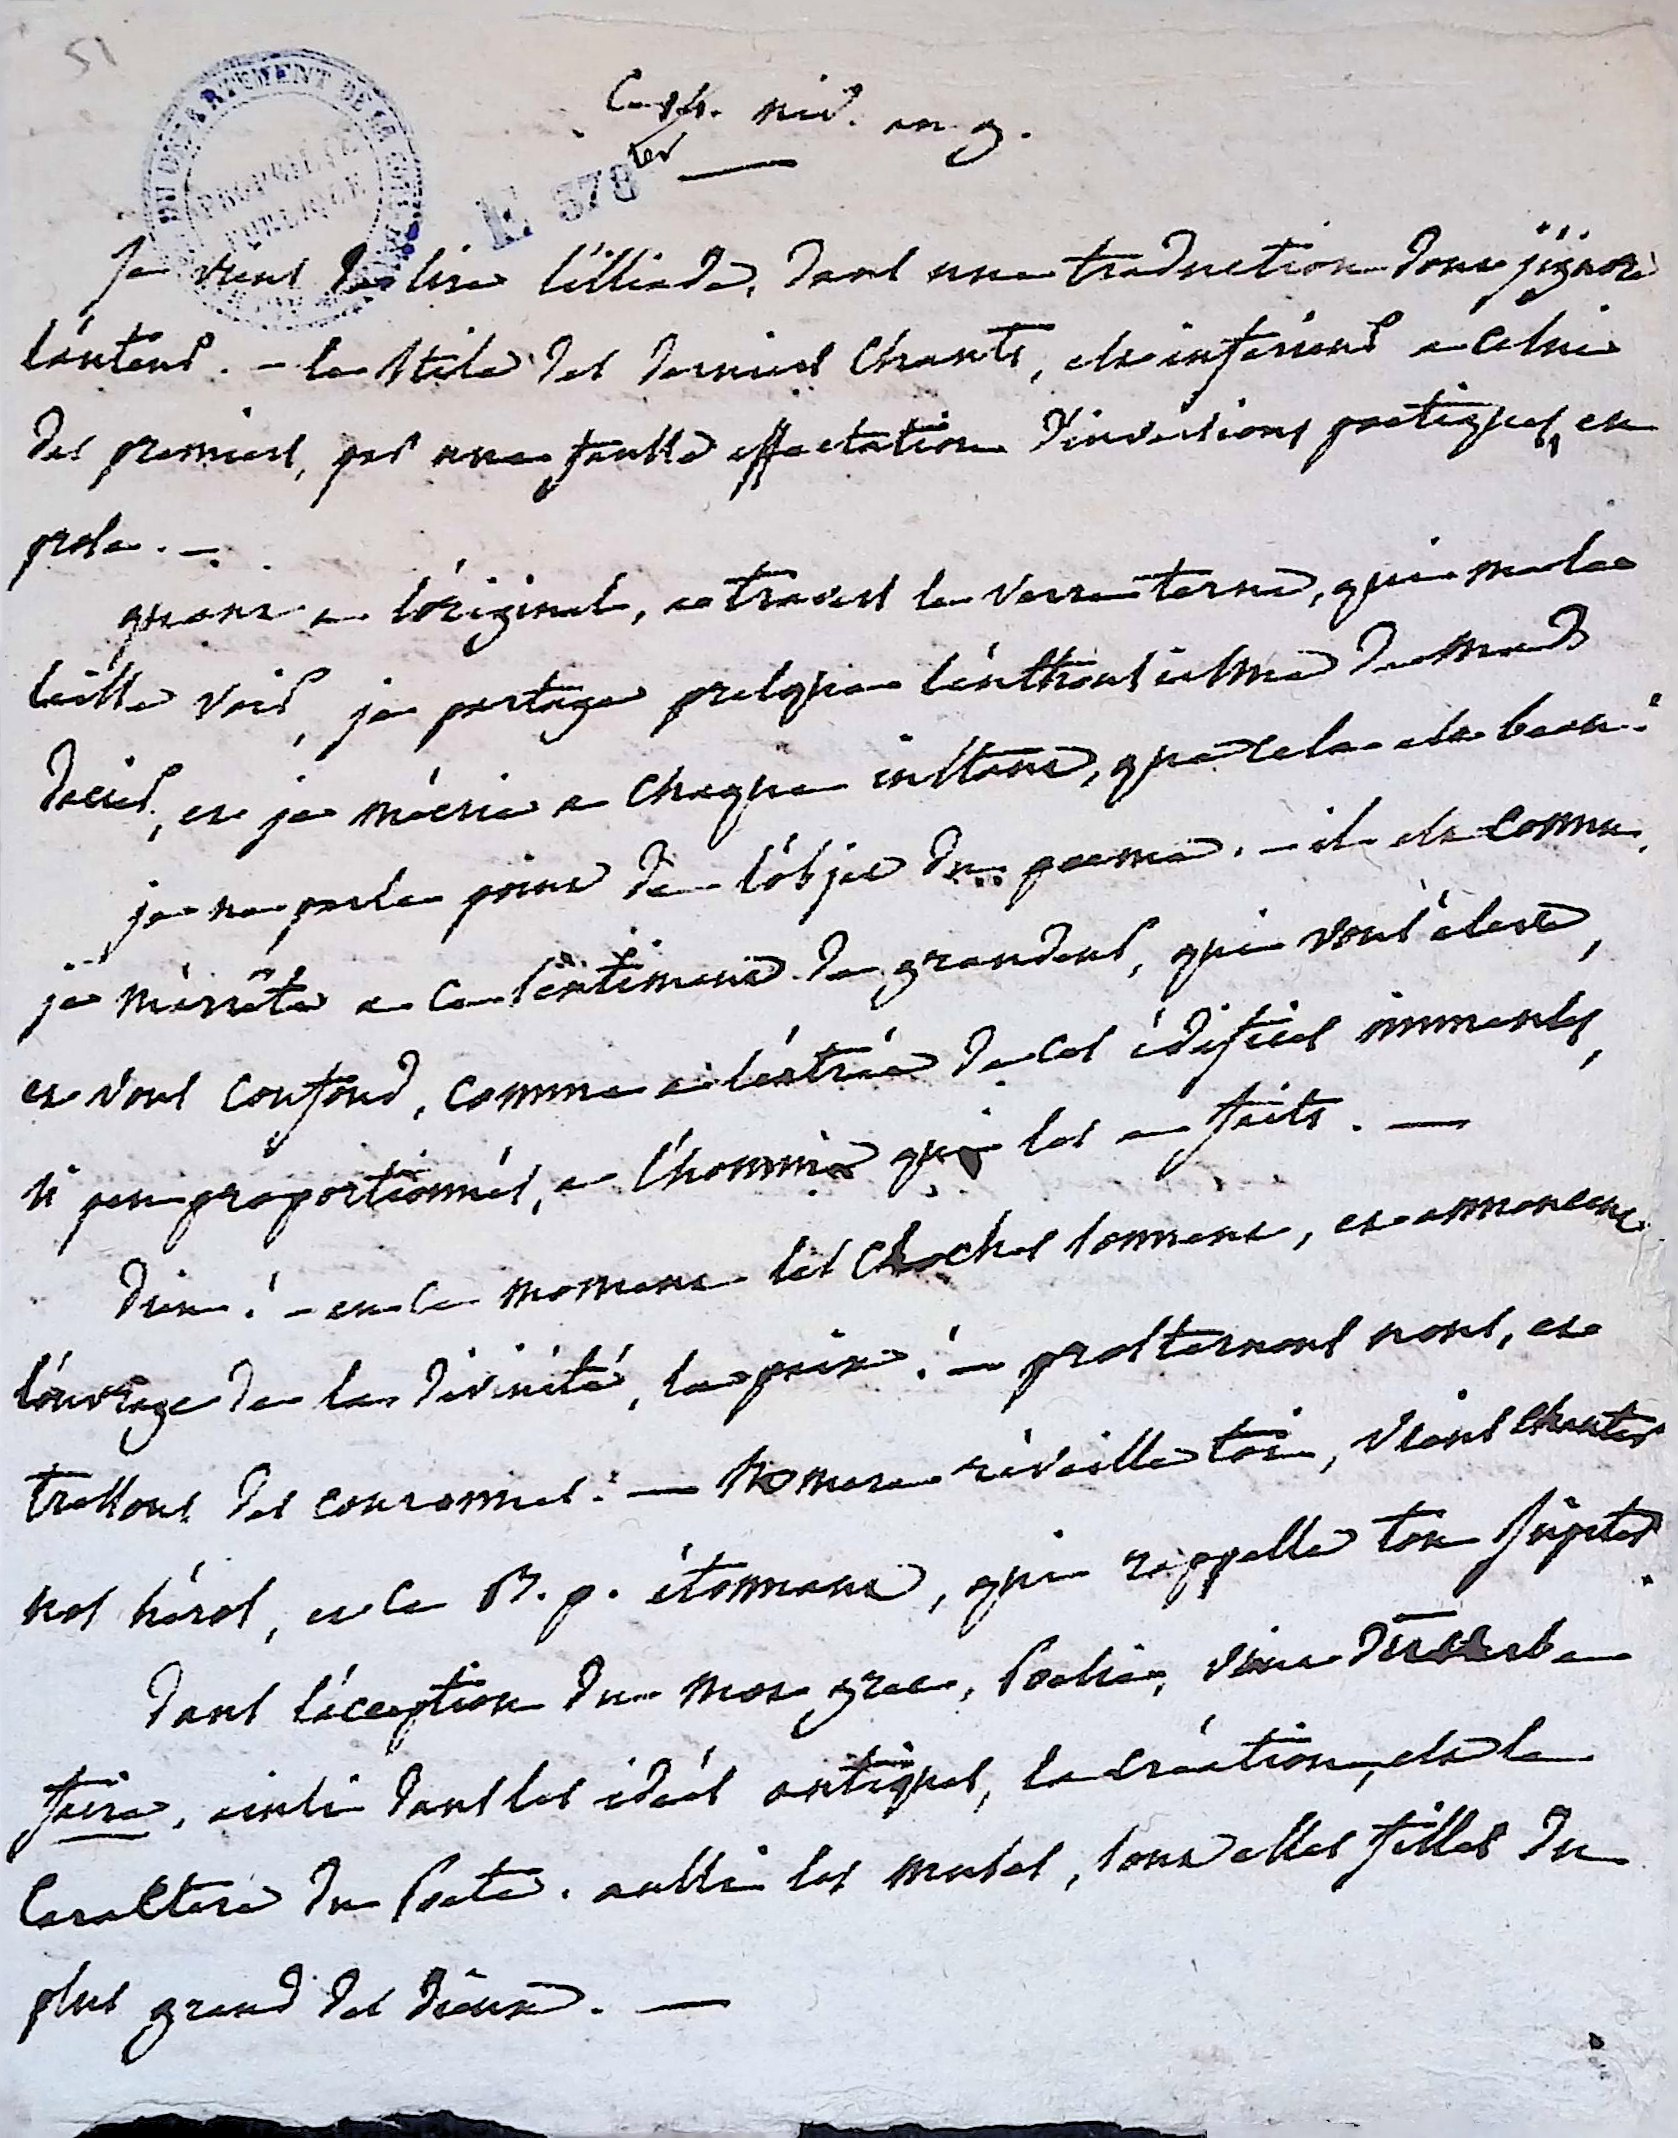 51
DU DÉPARTEMENT DE LA CÔTE
PROPRIÉTÉ
PUBLIQUE
Ce niv. an 9.
E 378 ter
Je viens de lire l'illiade, dans une traduction dont j'ignore
l'auteur. - le stile des derniers chants, est inférieur a celui
des premiers, par une fausse affectation d'inversions poetiques, en
prose. -
quant a l'original, a travers le verre terne, qui me le
laisse voir, je partage presque l'enthousiasme de Made
Dacier, et je m'écrie a chaque instant, que cela est beau !
je ne parle point de l'objet du poeme. - il est connu.
je m'arrête a ce sentiment de grandeur, qui vous éleve,
et vous confond, comme a l'entrée de ces édifices immenses,
si peu proportionnés, a l'homme qui les a faits. -
Dieu ! - en ce moment les cloches sonnent, et annoncent
l'ouvrage de la divinité, la paix ! - prosternons nous, et
tressons des couronnes : - homere réveille toi, viens chanter
nos héros, et ce B. p. étonnant, qui rappelle ton Jupiter.
Dans l'acception du mot grec, Poesie, vient du verbe
faire, ainsi dans les idées antiques, la création, est le
caractere du Poete. aussi les muses, sont elles filles du
plus grand des dieux. -